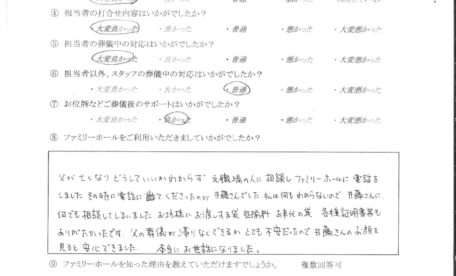 ・大変良かった ・良かった ・普通 ・悪かった ・大変悪かった
④ 担当者の打合せ内容はいかがでしたか？
・大変良かった ・良かった ・普通 ・悪かった ・大変悪かった
⑤ 担当者の葬儀中の対応はいかがでしたか？
・大変良かった ・良かった ・普通 ・悪かった ・大変悪かった
⑥ 担当者以外、スタッフの葬儀中の対応はいかがでしたか？
・大変良かった ・良かった ・普通 ・悪かった ・大変悪かった
⑦ お位牌などご葬儀後のサポートはいかがでしたか？
・大変良かった ・良かった ・普通 ・悪かった ・大変悪かった
⑧ ファミリーホールをご利用いただきましていかがでしたか？
父が亡くなりどうしていいかわからず 元職場の人に相談し ファミリーホールに電話を
しました その時に電話に出てくださったのが 藤さんでした 私は何もわからないので 藤さんに
何でも相談してしまいました お坊様にお渡しする 袋 各種証明書等も
ありがたかったです。父の葬儀が滞りなくできるか とても不安だったので 藤さんのお顔を
見ると安心できました。 本当にお世話になりました。
⑨ ファミリーホールを知った理由を教えていただけますでしょうか。 複数回答可